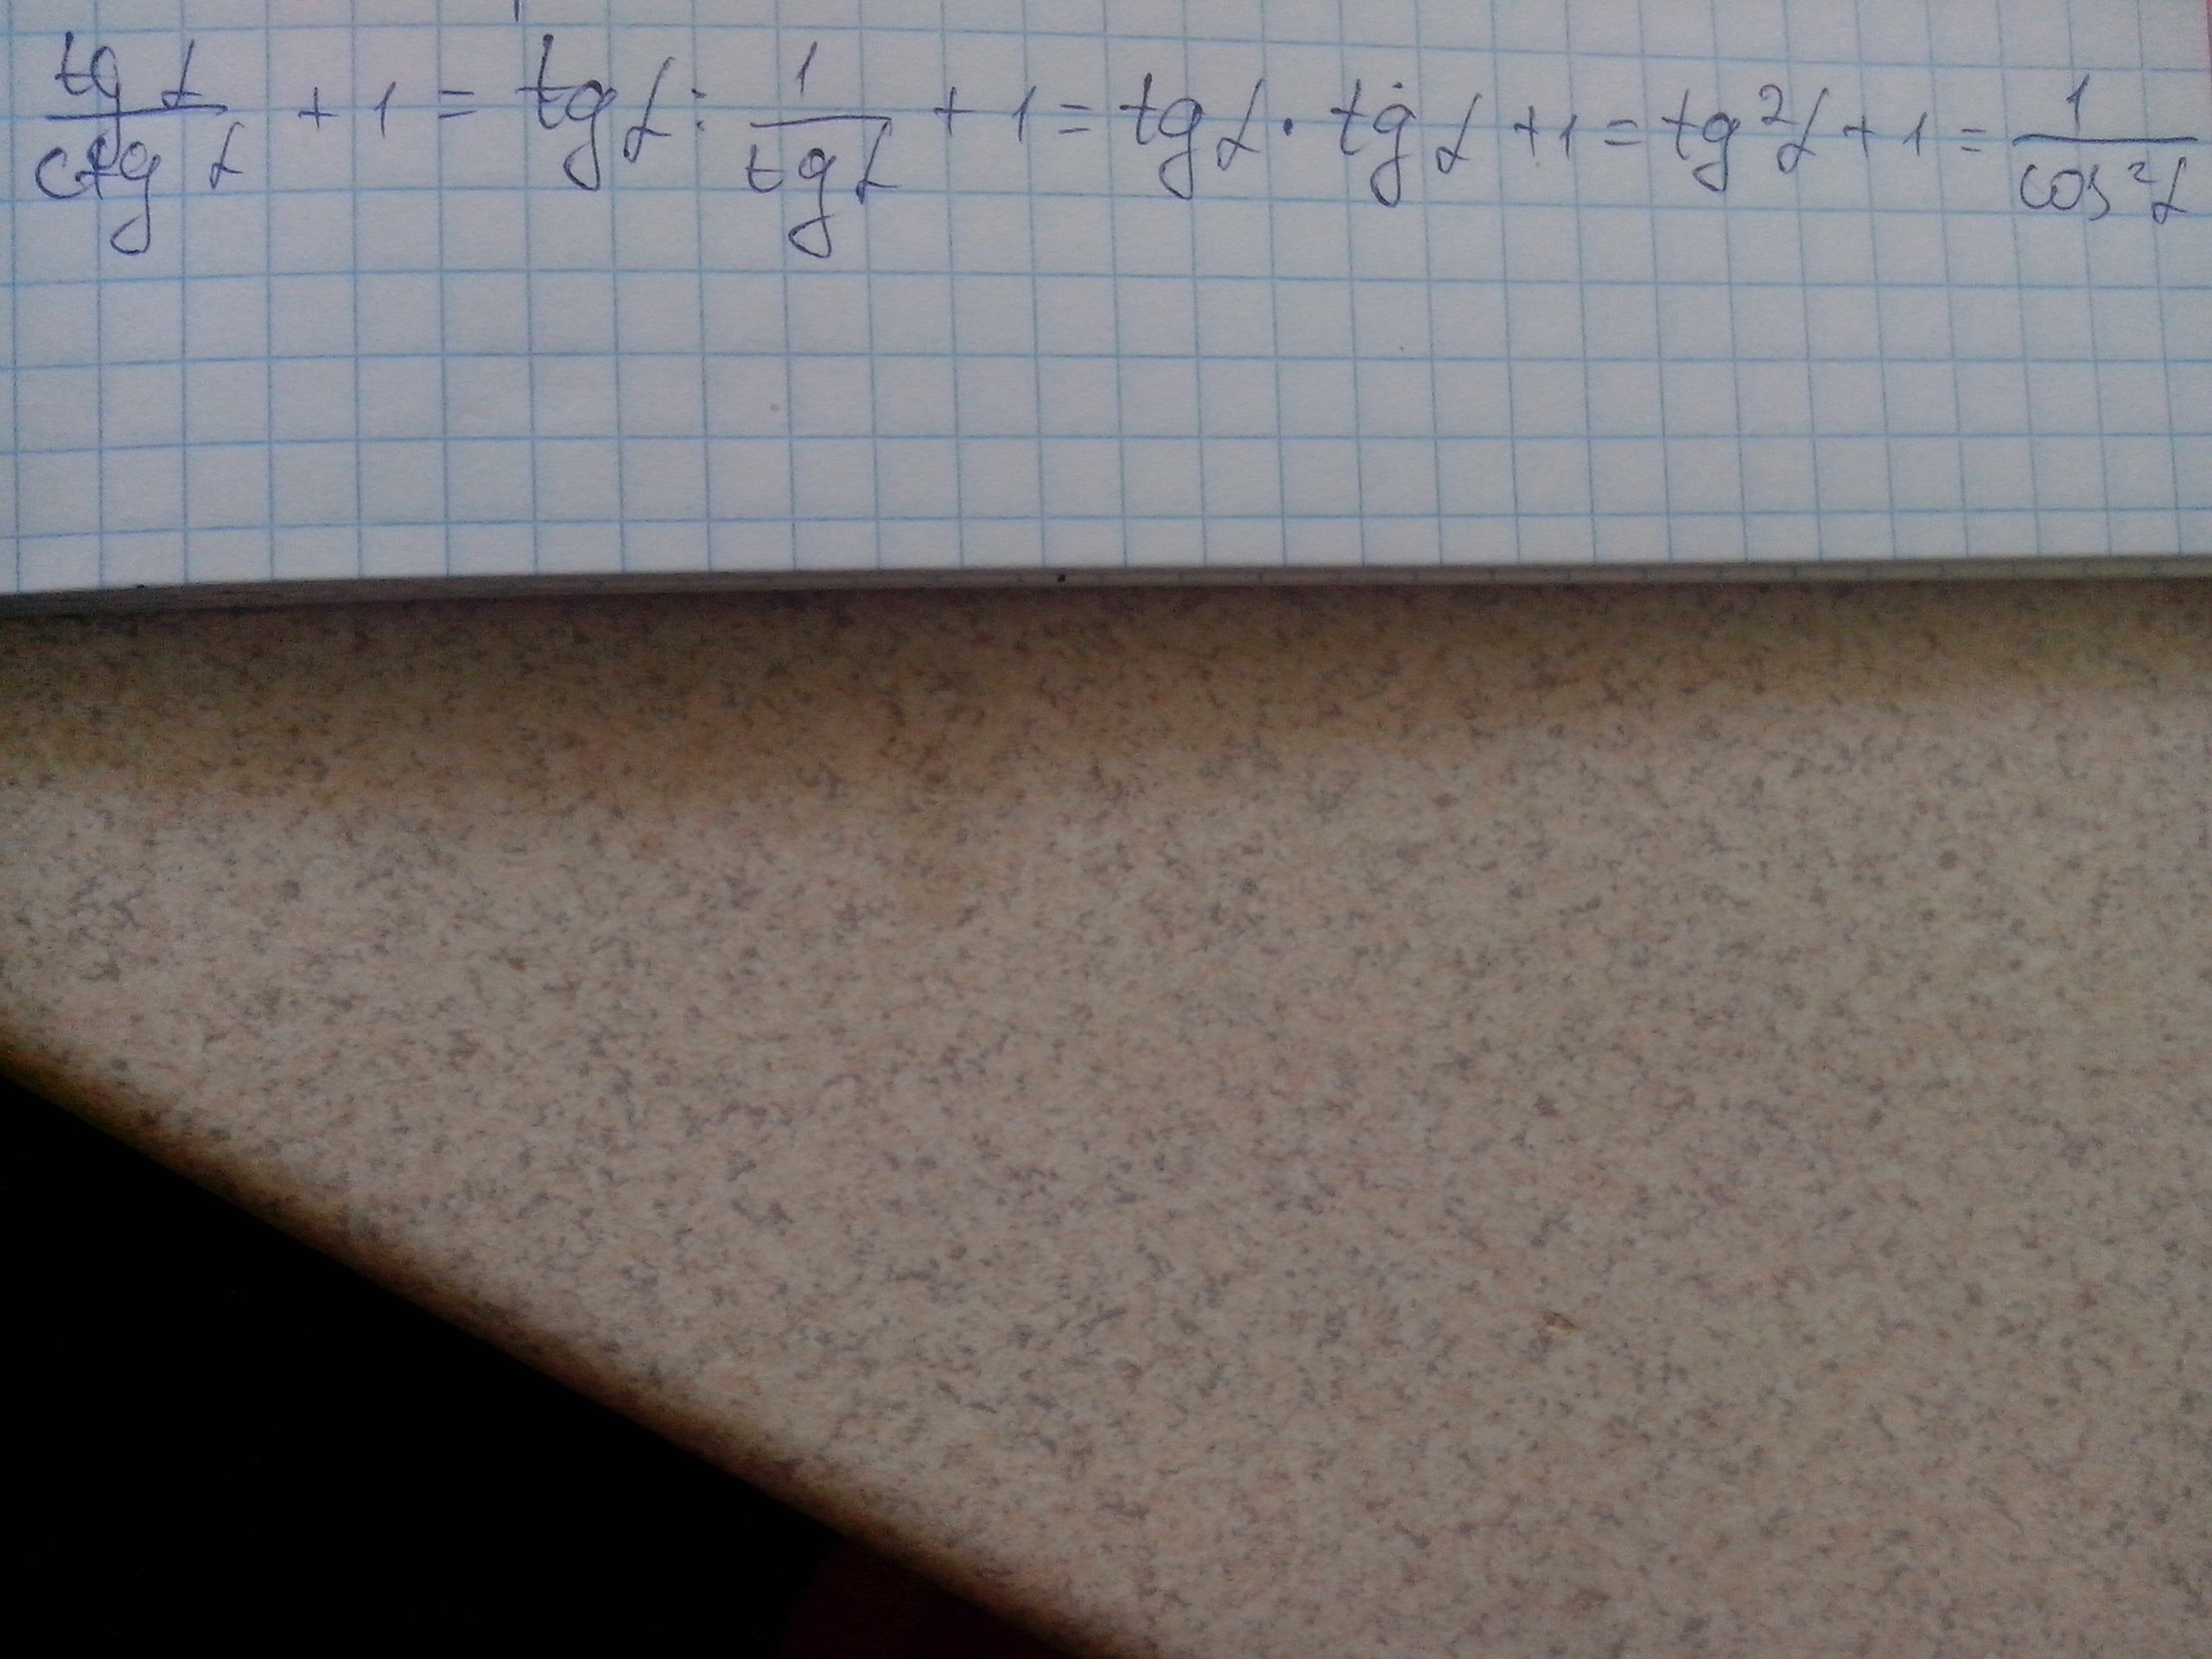 tg α / ctg α + 1 = tg α : 1 / tg α + 1 = tg α · tg α + 1 = tg²α + 1 = 1 / cos²α